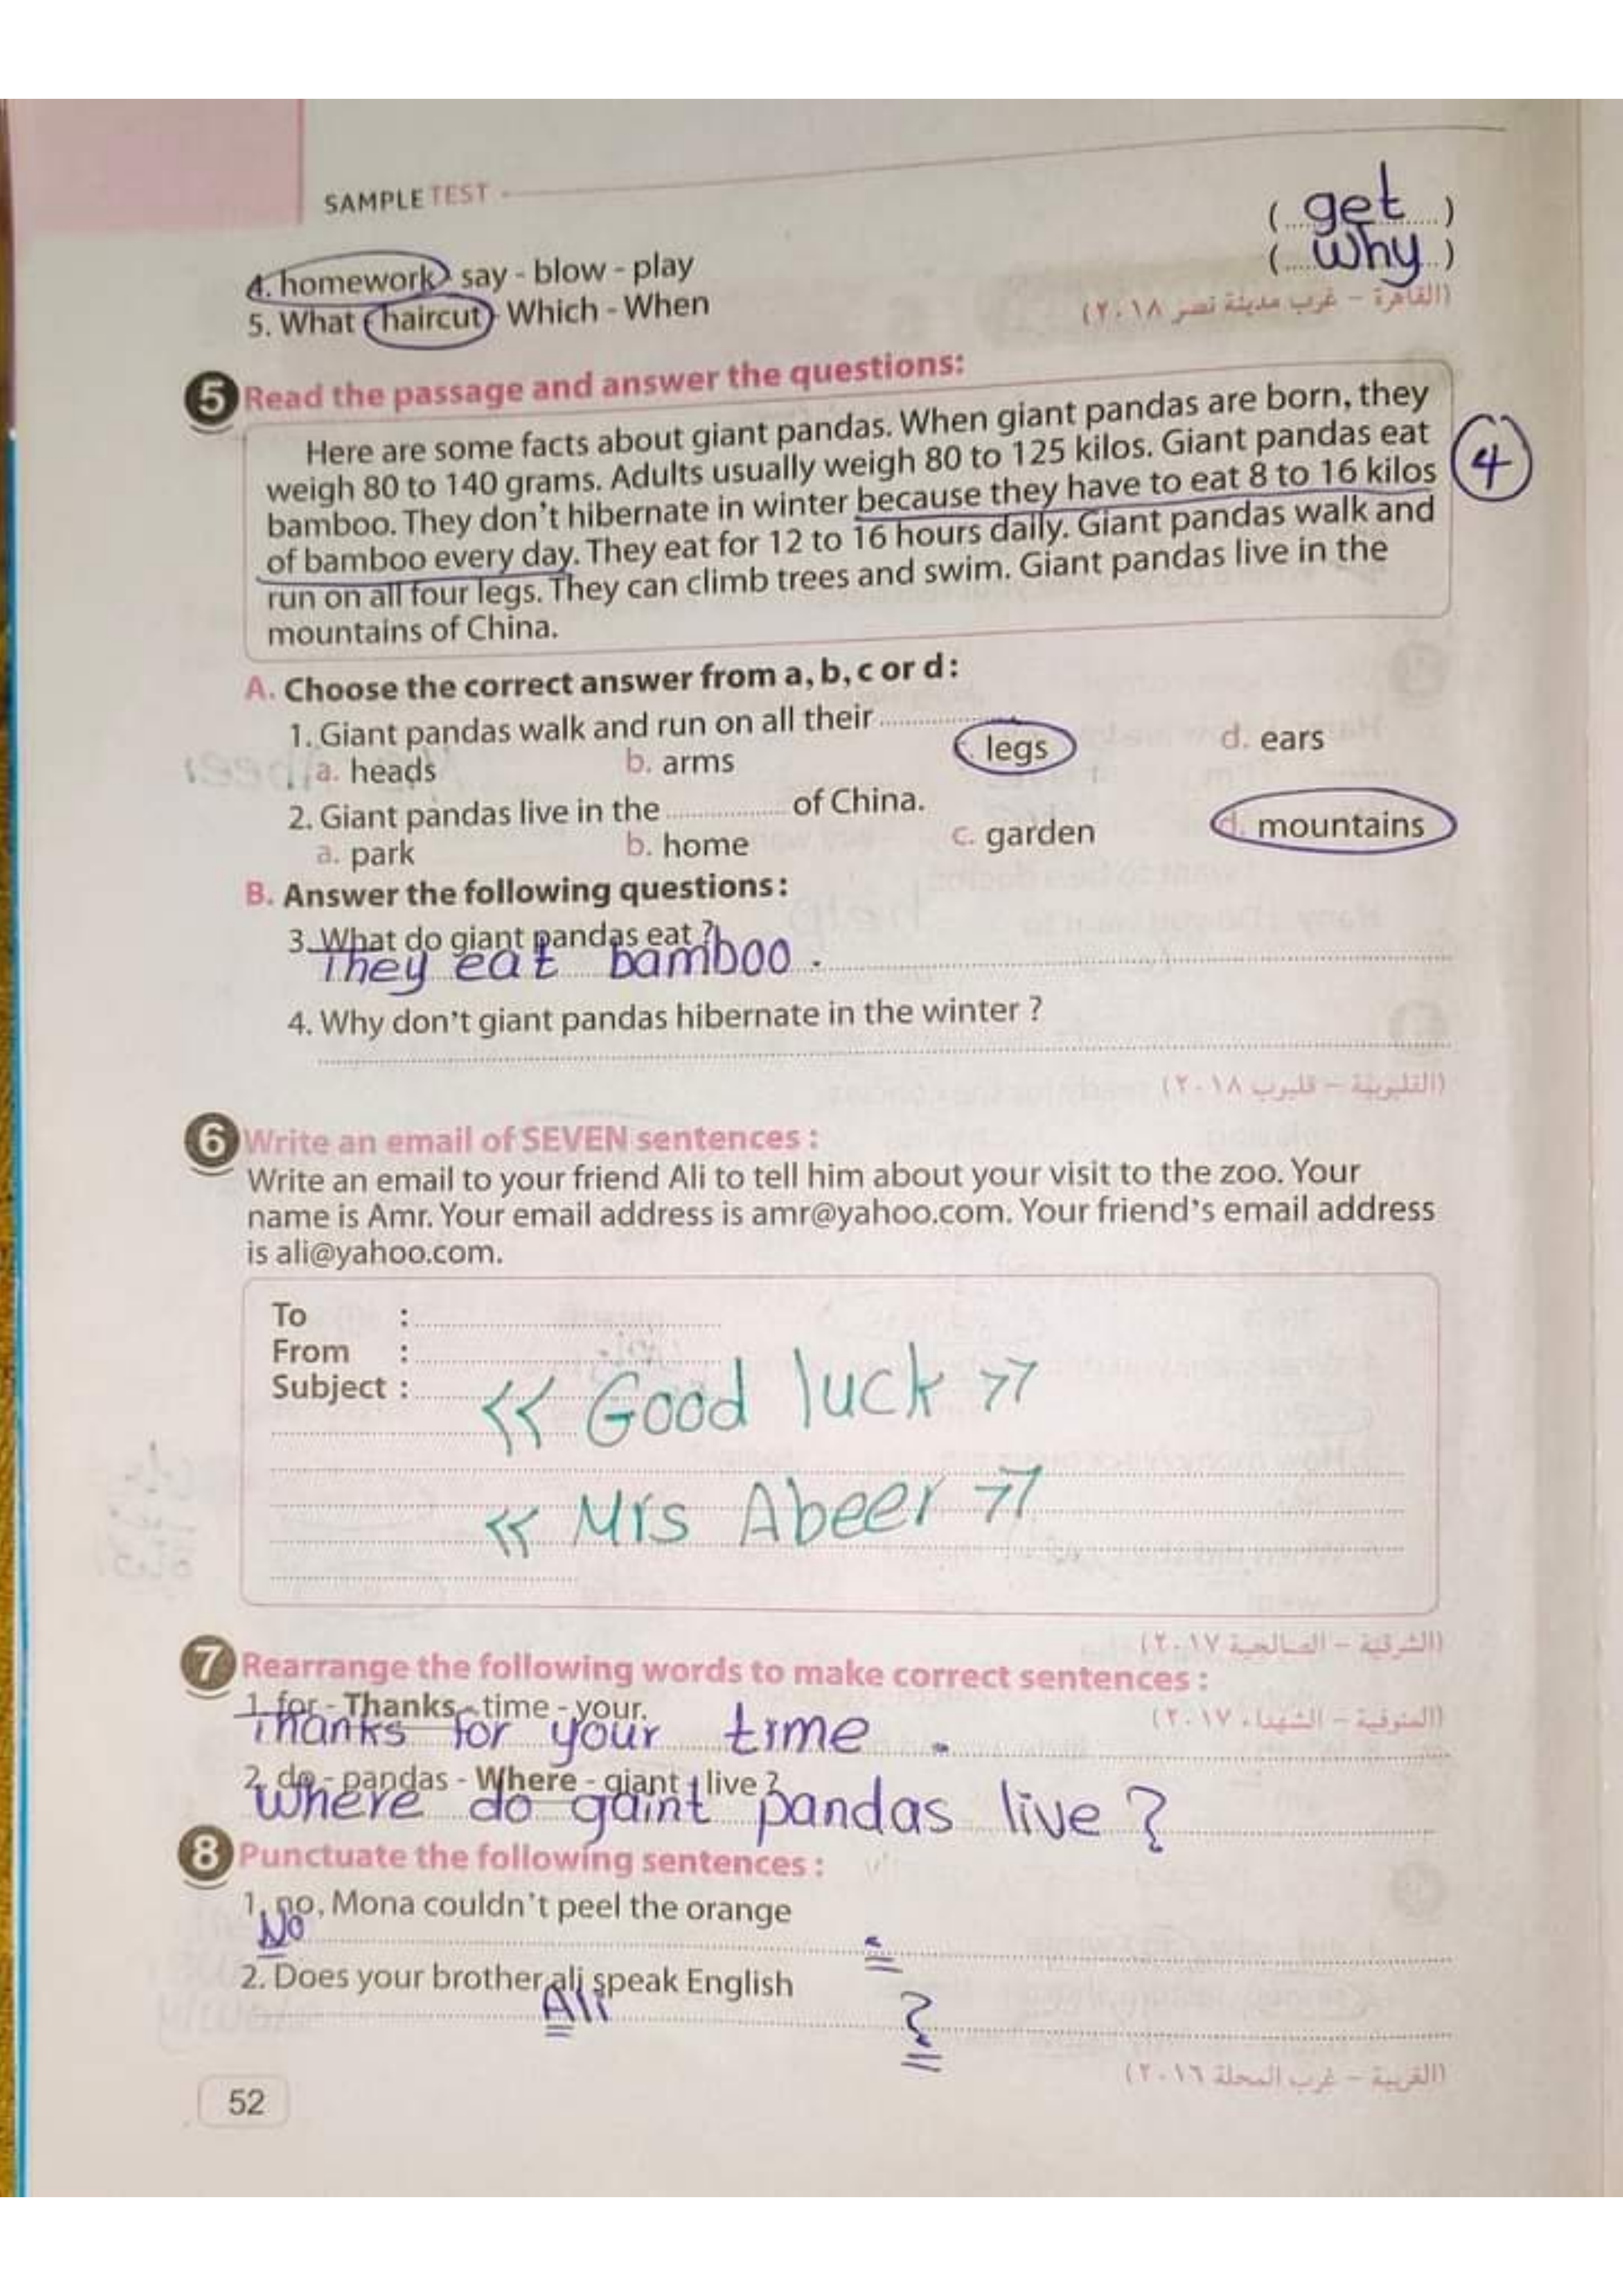 SAMPLE TEST
4. homework - say - blow - play ( get )
5. What - haircut - Which - When ( why )
(القاهرة - غرب مدينة نصر ٢٠١٨)
5 Read the passage and answer the questions:
Here are some facts about giant pandas. When giant pandas are born, they
weigh 80 to 140 grams. Adults usually weigh 80 to 125 kilos. Giant pandas eat
bamboo. They don't hibernate in winter because they have to eat 8 to 16 kilos
of bamboo every day. They eat for 12 to 16 hours daily. Giant pandas walk and
run on all four legs. They can climb trees and swim. Giant pandas live in the
mountains of China.
4
A. Choose the correct answer from a, b, c or d:
1. Giant pandas walk and run on all their ...............
a. heads b. arms c. legs d. ears
2. Giant pandas live in the ............... of China.
a. park b. home c. garden d. mountains
B. Answer the following questions:
3. What do giant pandas eat ?
They eat bamboo.
4. Why don't giant pandas hibernate in the winter ?
(القليوبية - قليوب ٢٠١٨)
6 Write an email of SEVEN sentences :
Write an email to your friend Ali to tell him about your visit to the zoo. Your
name is Amr. Your email address is amr@yahoo.com. Your friend's email address
is ali@yahoo.com.
To :
From :
Subject :
<< Good luck >>
<< Mrs Abeer >>
(الشرقية - الصالحية ٢٠١٧)
7 Rearrange the following words to make correct sentences :
1. for - Thanks - time - your.
(المنوفية - الشهداء ٢٠١٧)
Thanks for your time .
2. do - pandas - Where - giant - live ?
Where do gaint pandas live ?
8 Punctuate the following sentences :
1. no, Mona couldn't peel the orange
No .
2. Does your brother ali speak English
Ali ?
(الغربية - غرب المحلة ٢٠١٦)
52